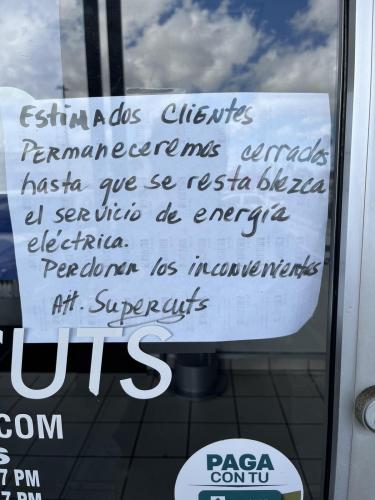 Estimados Clientes
Permaneceremos cerrados
hasta que se restablezca
el servicio de energía
eléctrica.
Perdonen los inconvenientes
Att. Supercuts
CUTS
.COM
S
7 PM
7 PM
PAGA
CON TU